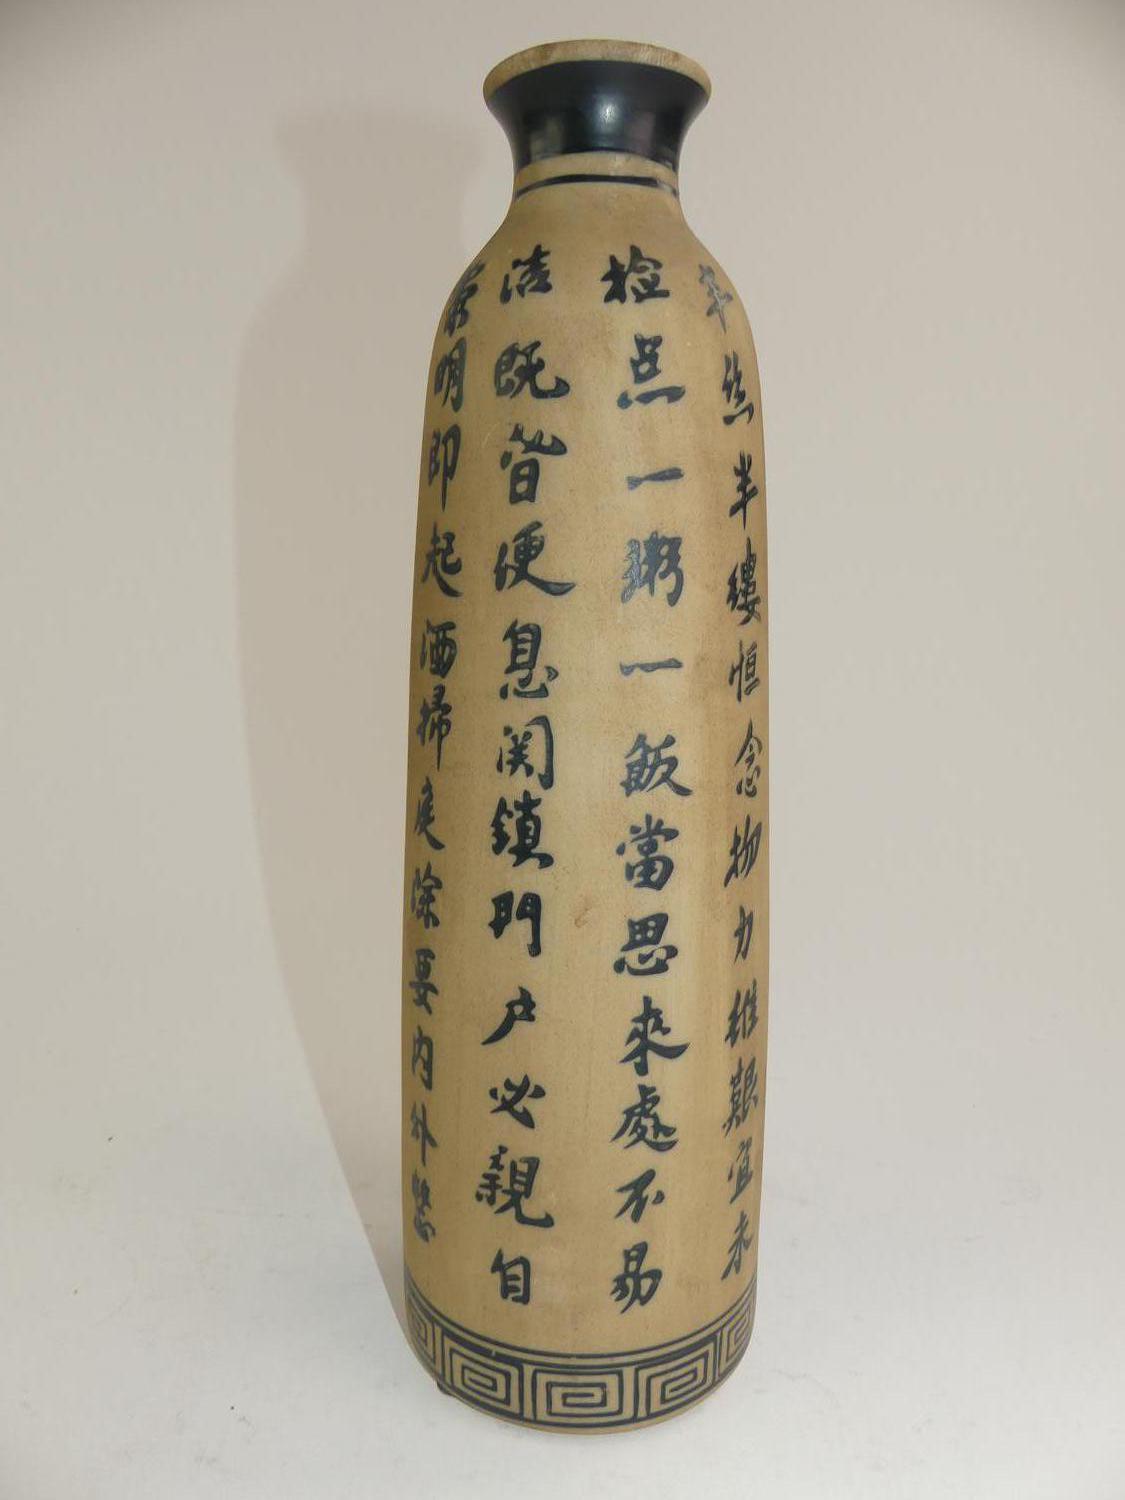 黎明即起洒掃庭除要内外整
洁既昏便息関鎖門户必親自
检点一粥一飯當思來處不易
半丝半縷恒念物力維艱宜未